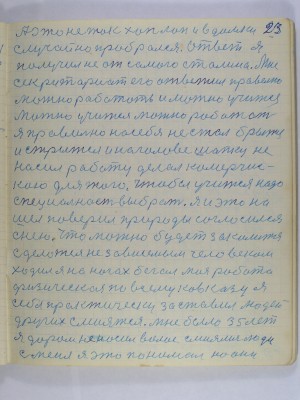 23
А это не так хоплоп и вдомну
случайно пробрался. Ответ я
получил не от самого сталина. Мне
секретариат его ответил правильно
можно работать и можно учится
можно учится можно работ от
я правильно на себя не стал брится
и стрится и на голове шапку не
насил работу делал камерчис-
каю для того. Чтобы учится надо
специальность выбрат. Я и это на
шел поверил природы согласился
снею. Что можно будет закалится
сделатся не зависимым человеком
ходил я на ногах бегал моя работа
физическая по всему ковказу я
себя практически заставил людей
других смиятся. мне было 35 лет
я даром не насил волос смиялис люди
с меня я это понимал но они